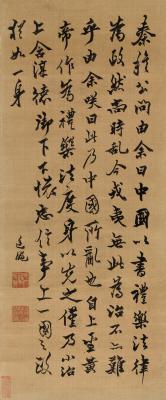 秦穆公問由余曰中國以書禮樂法律
為政然尚時亂今戎夷無此為治不亦難
乎由余笑曰此乃中國所亂也自上聖黃
帝作為禮樂法度身以先之僅乃小治
上含淳德御下下懷忠信事上一國之政
猶如一身